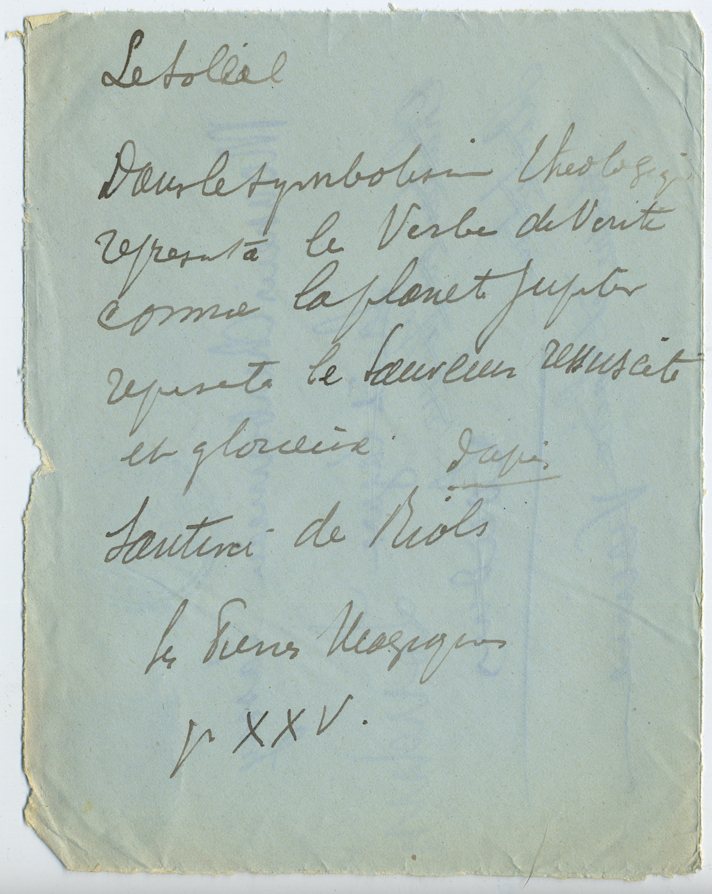 Le Soleil
Dans le symbolisme théologique
représente le Verbe de Vérité
comme la planète Jupiter
représente le Sauveur ressuscité
et glorieux. d'après
Santini de Riols
Les Pierres Magiques
p XXV.